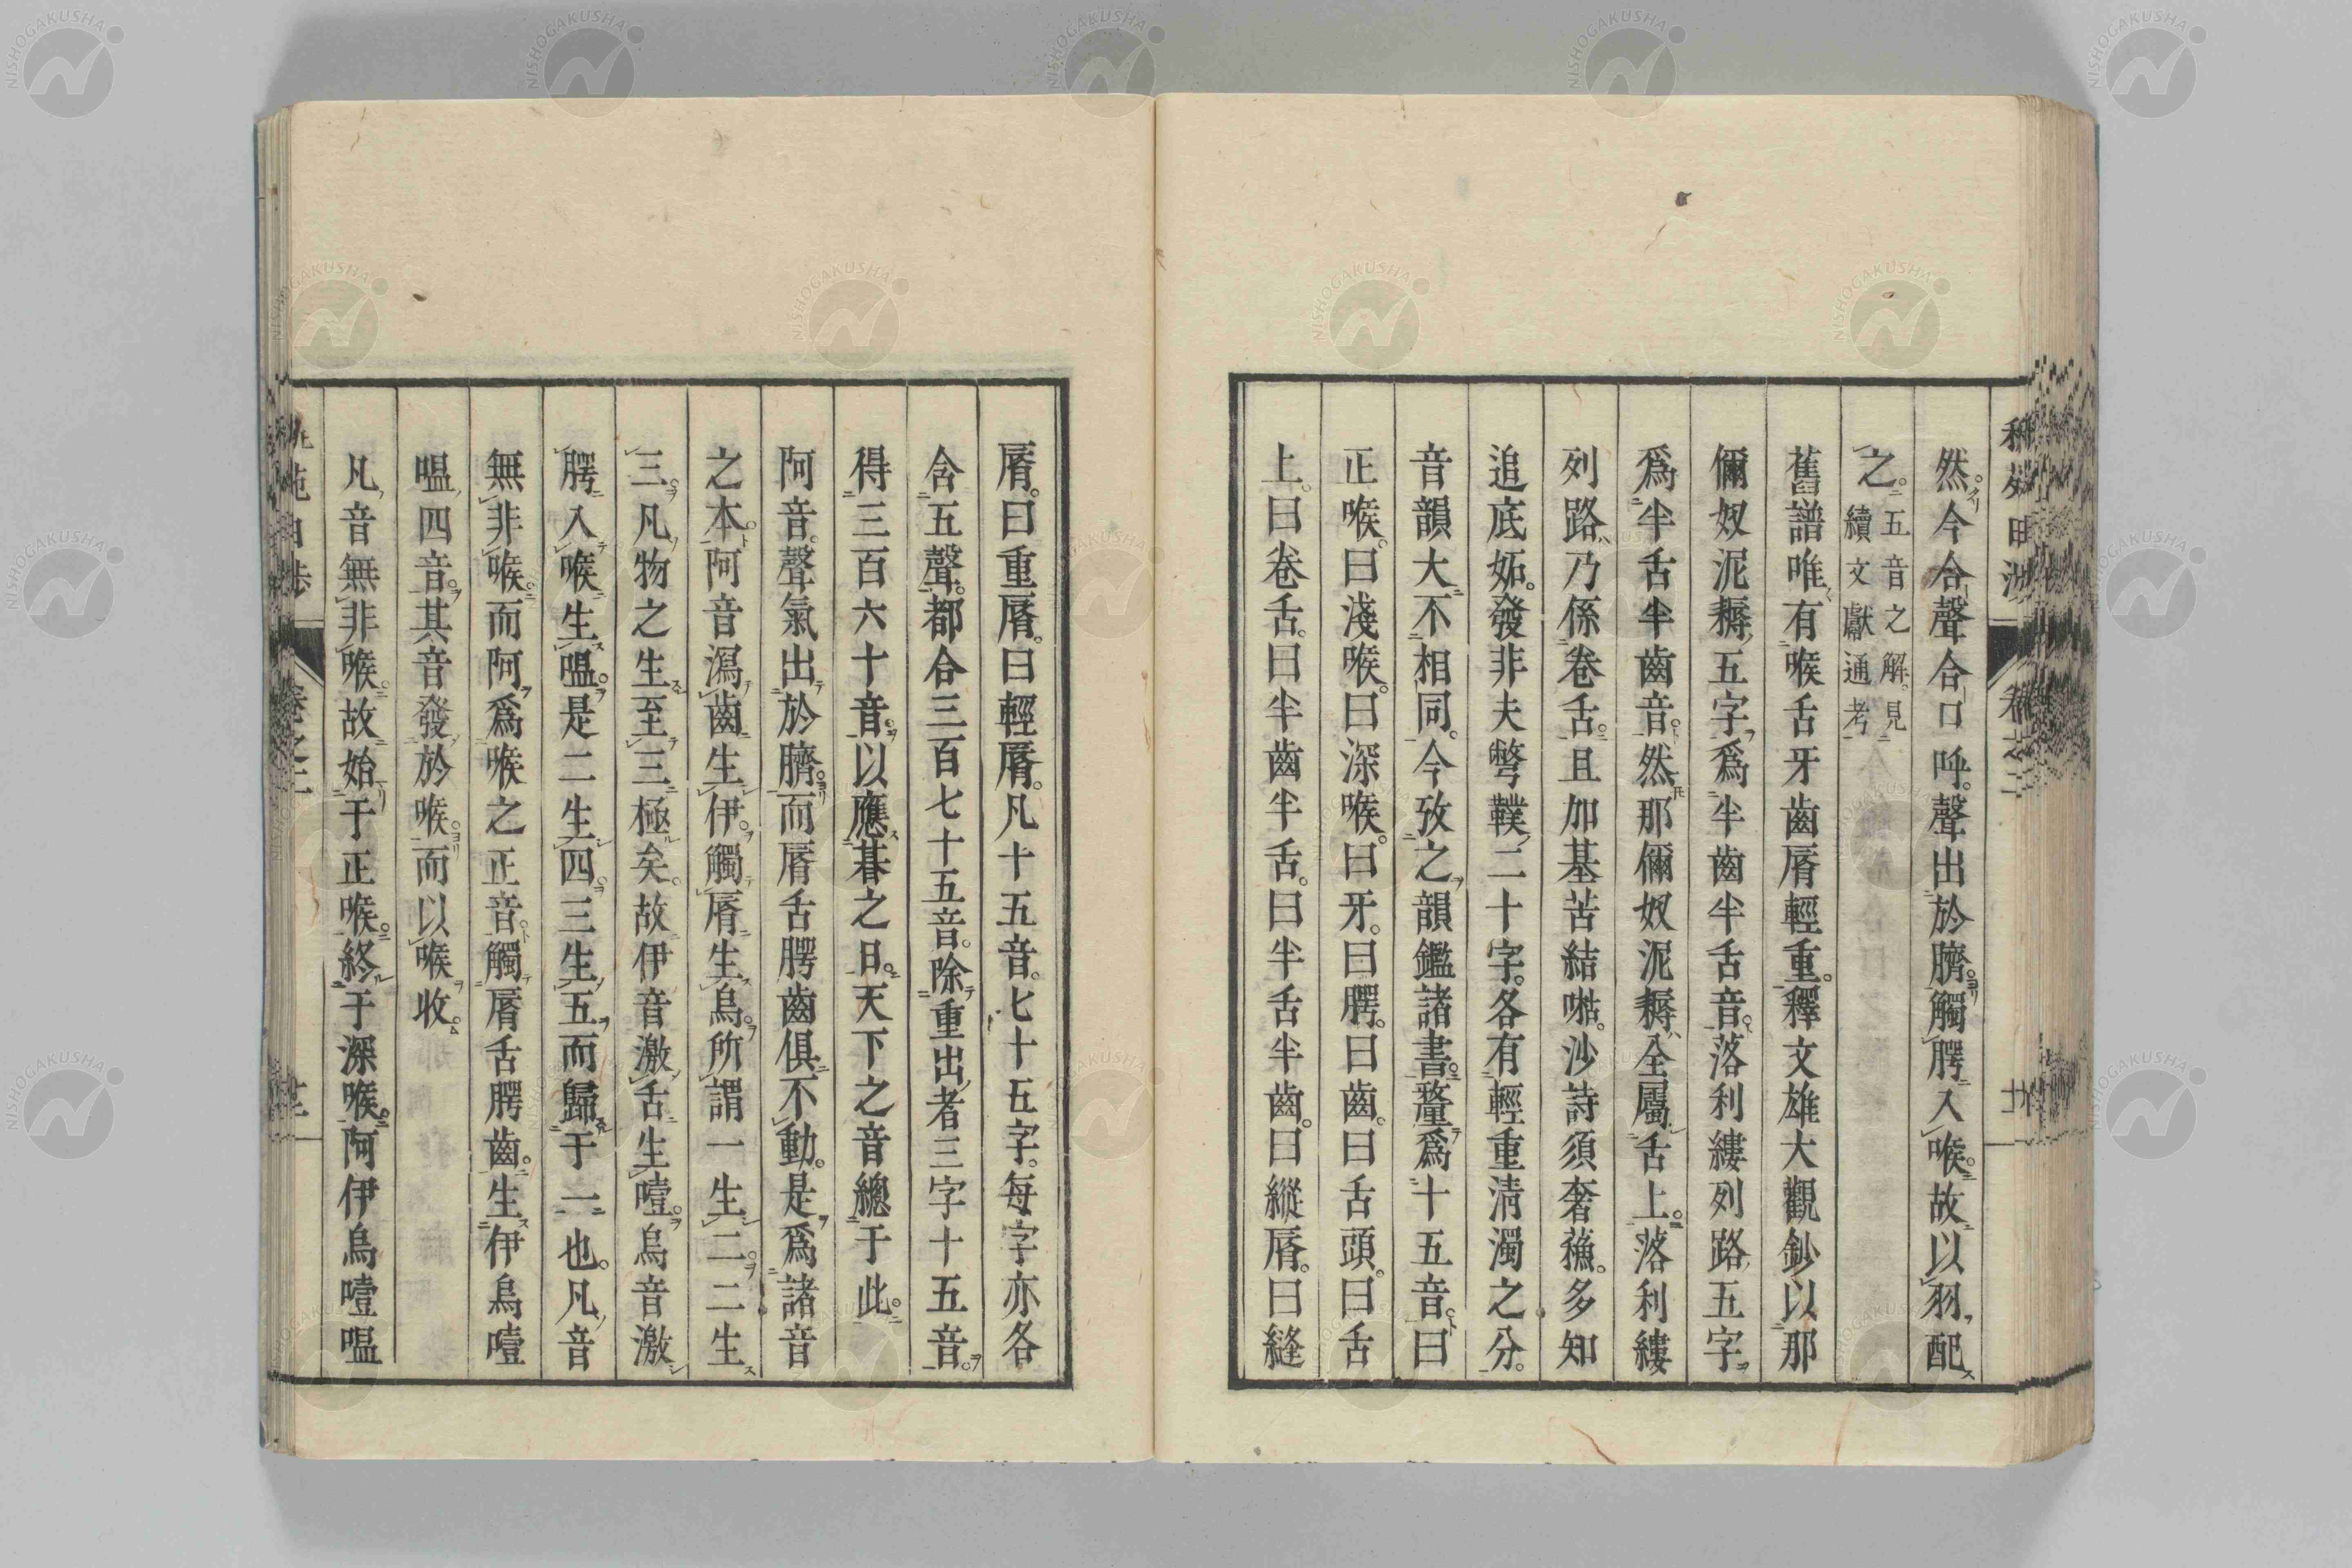 然今合聲合口呼。聲出於臍。觸腭入喉。故以羽配
之。五音之解。見
續文獻通考
舊譜唯有喉舌牙齒脣輕重。釋文雄大觀鈔以那
儞奴泥耨五字爲半齒半舌音。落利縷列路五字
爲半舌半齒音。然那儞奴泥耨全屬舌上。落利縷
列路乃係卷舌。且加基苦結㗉。沙詩須奢蘓。多知
追底妬。發非夫彆轐二十字。各有輕重淸濁之分。
音韻大不相同。今攷之韻鑑諸書。釐爲十五音。曰
正喉。曰淺喉。曰深喉。曰牙。曰腭。曰齒。曰舌頭。曰舌
上。曰卷舌。曰半齒半舌。曰半舌半齒。曰縱脣。曰縫
脣。曰重脣。曰輕脣。凡十五音。七十五字。每字亦各
含五聲。都合三百七十五音。除重出者三字十五音。
得三百六十音。以應朞之日。天下之音總于此。
阿音。聲氣出於臍。而脣舌腭齒俱不動。是爲諸音
之本。阿音瀉齒生伊。觸脣生烏。所謂一生二。二生
三。凡物之生至三極矣。故伊音激舌生噎。烏音激
腭入喉生嗢。是二生四。三生五而歸于一也。凡音
無非喉。而阿爲喉之正音。觸脣舌腭齒。生伊烏噎
嗢四音。其音發於喉。而以喉收。
凡音無非喉。故始于正喉。終于深喉。阿伊烏噎嗢